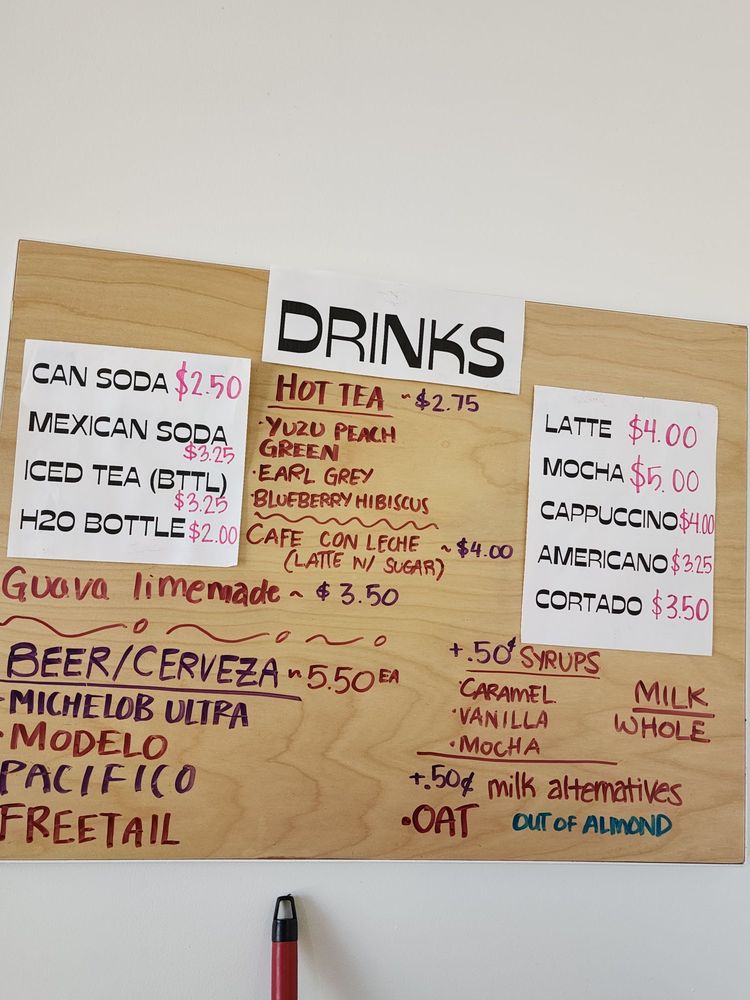 DRINKS
CAN SODA $2.50
MEXICAN SODA
$3.25
ICED TEA (BTTL)
$3.25
H20 BOTTLE $2.00
HOT TEA ~ $2.75
·YUZU PEACH
GREEN
·EARL GREY
·BLUEBERRY HIBISCUS
CAFE CON LECHE ~ $4.00
(LATTE W/ SUGAR)
LATTE $4.00
MOCHA $5.00
CAPPUCCINO $4.00
AMERICANO $3.25
CORTADO $3.50
Guava limemade ~ $3.50
BEER/CERVEZA ~ 5.50 EA
·MICHELOB ULTRA
·MODELO
PACIFICO
FREETAIL
+.50¢ SYRUPS
·CARAMEL
·VANILLA
·MOCHA
MILK
WHOLE
+.50¢ milk alternatives
·OAT OUT OF ALMOND